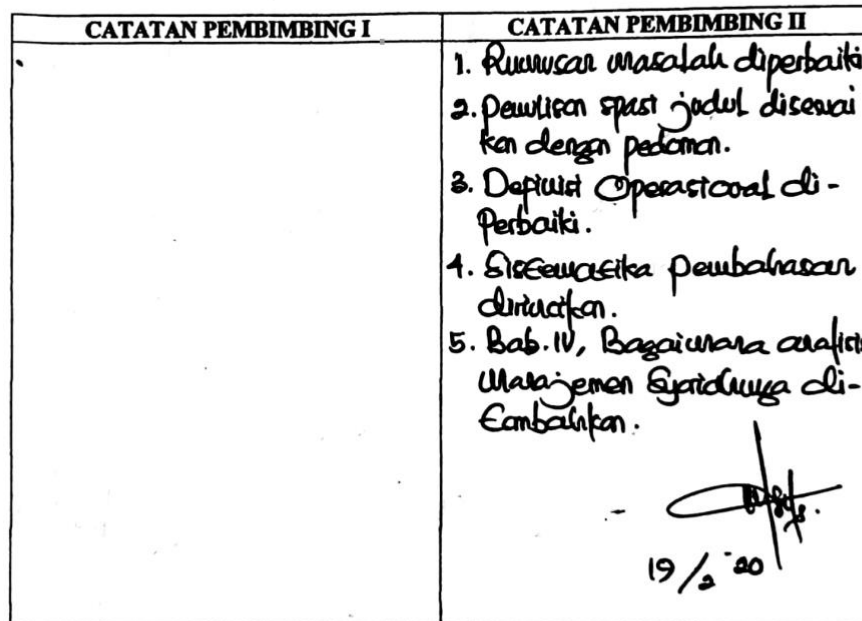 CATATAN PEMBIMBING I
CATATAN PEMBIMBING II
1. Rumusan masalah diperbaiki
2. Penulisan spasi judul disesuai
kan dengan pedoman.
3. Definisi Operasional di-
Perbaiki.
4. Sistematika pembahasan
dirincikan.
5. Bab. IV, Bagaimana analisis
Manajemen Syariahnya di-
tambahkan.
19/2 20